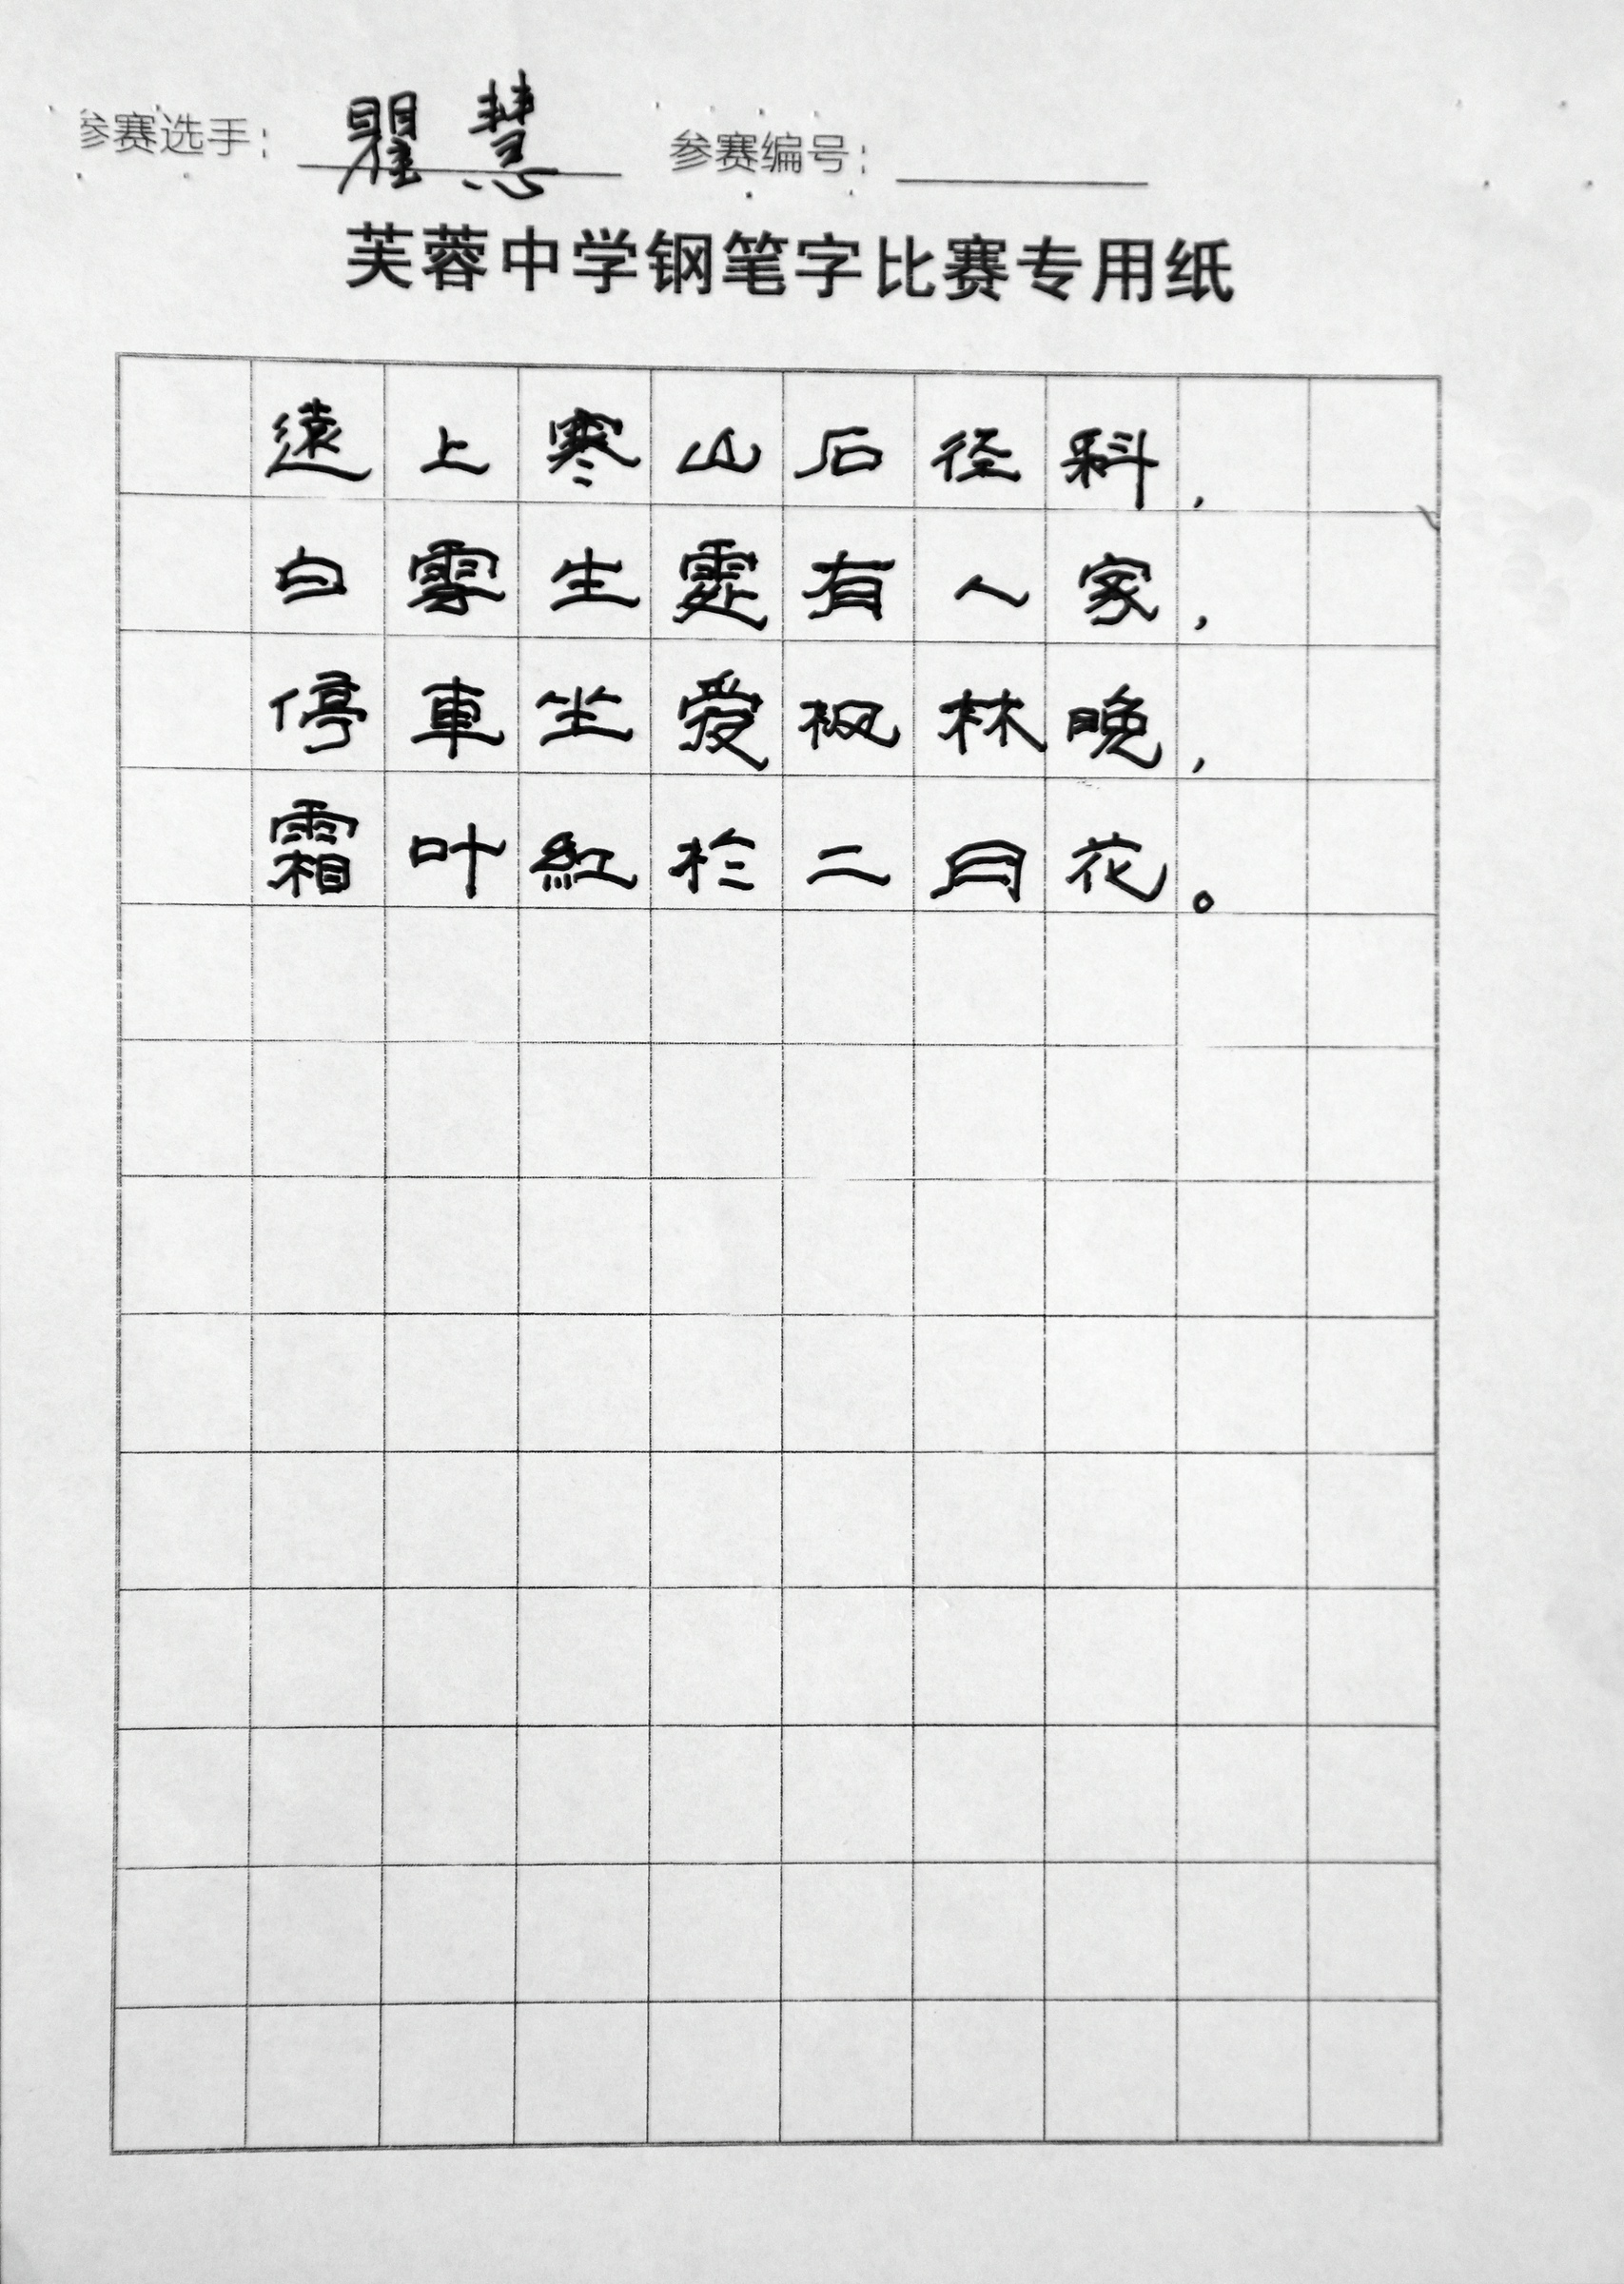 参赛选手：瞿慧 参赛编号：
芙蓉中学钢笔字比赛专用纸
遠上寒山石径科，
白雲生處有人家，
停車坐爱枫林晚，
霜叶紅於二月花。